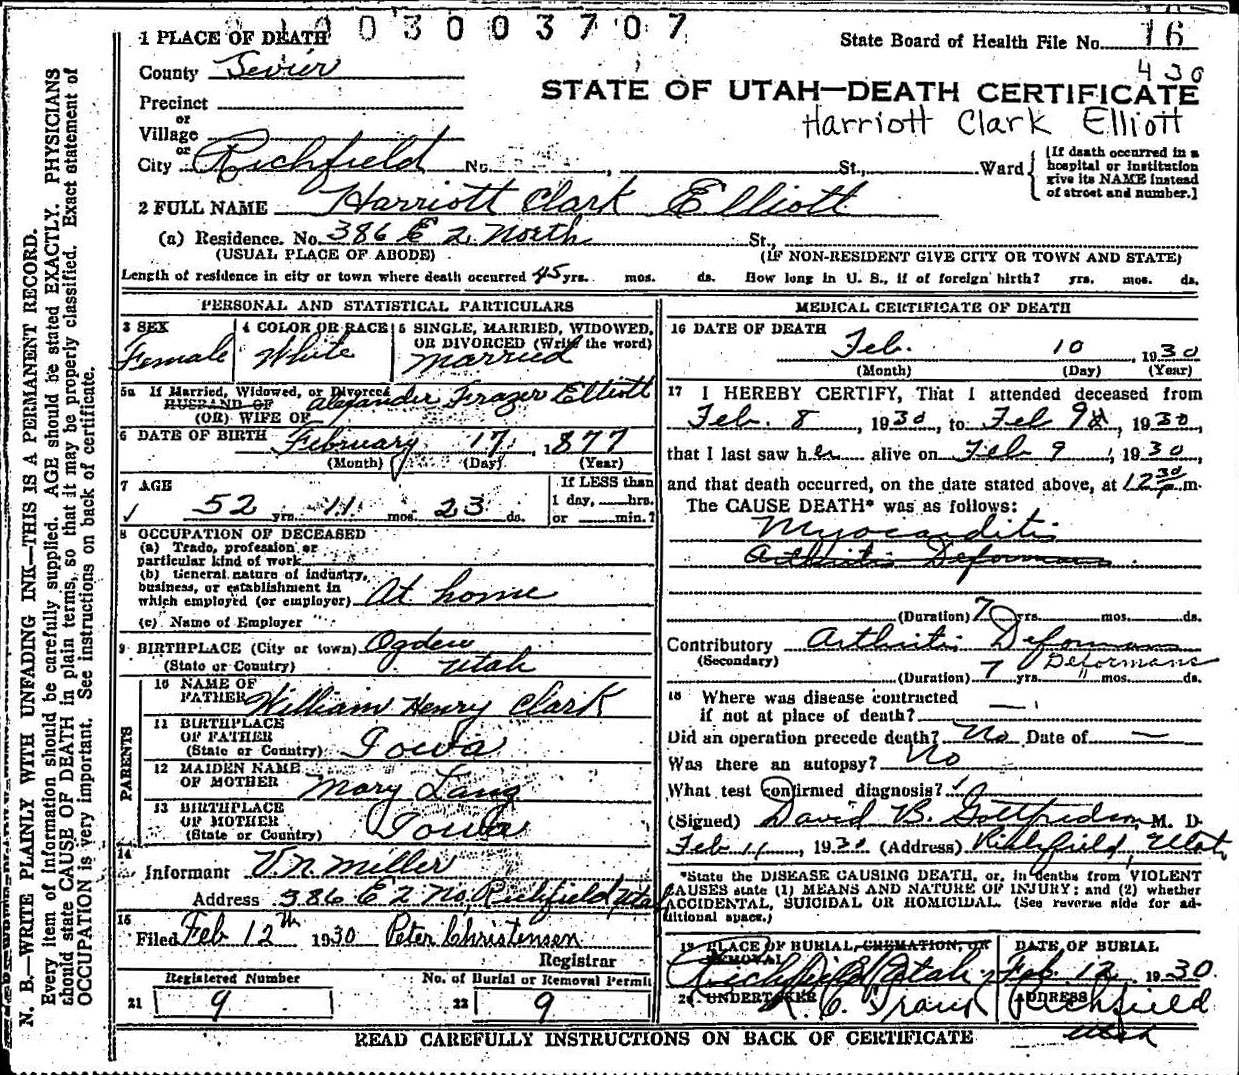 1 0 0 3 0 0 3 7 0 7
1 PLACE OF DEATH
State Board of Health File No. 16
430
County Sevier
STATE OF UTAH—DEATH CERTIFICATE
Precinct
or
Village
Harriott Clark Elliott
or
City Richfield No. , St., Ward
[If death occurred in a hospital or institution give its NAME instead of street and number.]
2 FULL NAME Harriott Clark Elliott
(a) Residence. No. 386 E 2 North St.,
(USUAL PLACE OF ABODE) (IF NON-RESIDENT GIVE CITY OR TOWN AND STATE)
Length of residence in city or town where death occurred 45 yrs. mos. ds. How long in U. S., if of foreign birth? yrs. mos. ds.
PERSONAL AND STATISTICAL PARTICULARS
3 SEX
Female
4 COLOR OR RACE
White
5 SINGLE, MARRIED, WIDOWED, OR DIVORCED (Write the word)
Married
5a If Married, Widowed, or Divorced
HUSBAND OF
(OR) WIFE OF Alexander Frazer Elliott
6 DATE OF BIRTH February 17, 1877
(Month) (Day) (Year)
7 AGE
52 yrs. 11 mos. 23 ds.
If LESS than
1 day, hrs.
or min.?
8 OCCUPATION OF DECEASED
(a) Trade, profession or
particular kind of work
(b) General nature of industry,
business, or establishment in
which employed (or employer) At home
(c) Name of Employer
9 BIRTHPLACE (City or town) Ogden
(State or Country) Utah
PARENTS
10 NAME OF
FATHER William Henry Clark
11 BIRTHPLACE
OF FATHER
(State or Country) Iowa
12 MAIDEN NAME
OF MOTHER Mary Lang
13 BIRTHPLACE
OF MOTHER
(State or Country) Iowa
14
Informant V. N. Miller
Address 386 E 2 No, Richfield, Utah
15
Filed Feb 12th 1930 Peter Christensen
Registrar
Registered Number
21 9
No. of Burial or Removal Permit
22 9
MEDICAL CERTIFICATE OF DEATH
16 DATE OF DEATH
Feb. 10, 1930
(Month) (Day) (Year)
17 I HEREBY CERTIFY, That I attended deceased from
Feb. 8, 1930, to Feb 9, 1930,
that I last saw her alive on Feb 9, 1930,
and that death occurred, on the date stated above, at 12 30 p m.
The CAUSE DEATH* was as follows:
Myocarditis
Arthritis Deformans
(Duration) 7 yrs. mos. ds.
Contributory Arthritis Deformans
(Secondary) Deformans
(Duration) 7 yrs. " mos. ds.
18 Where was disease contracted
if not at place of death? —
Did an operation precede death? No Date of —
Was there an autopsy? No
What test confirmed diagnosis?
(Signed) David B. Gottfredson M. D.
Feb 11, 1930 (Address) Richfield, Utah
*State the DISEASE CAUSING DEATH, or, in deaths from VIOLENT
CAUSES state (1) MEANS AND NATURE OF INJURY; and (2) whether
ACCIDENTAL, SUICIDAL OR HOMICIDAL. (See reverse side for additional space.)
19 PLACE OF BURIAL, CREMATION, OR REMOVAL
Richfield Utah
DATE OF BURIAL
Feb. 12 1930
20 UNDERTAKER
ADDRESS
Richfield
Utah
READ CAREFULLY INSTRUCTIONS ON BACK OF CERTIFICATE
N. B.—WRITE PLAINLY WITH UNFADING INK—THIS IS A PERMANENT RECORD.
Every item of information should be carefully supplied. AGE should be stated EXACTLY. PHYSICIANS
should state CAUSE OF DEATH in plain terms, so that it may be properly classified. Exact statement of
OCCUPATION is very important. See instructions on back of certificate.